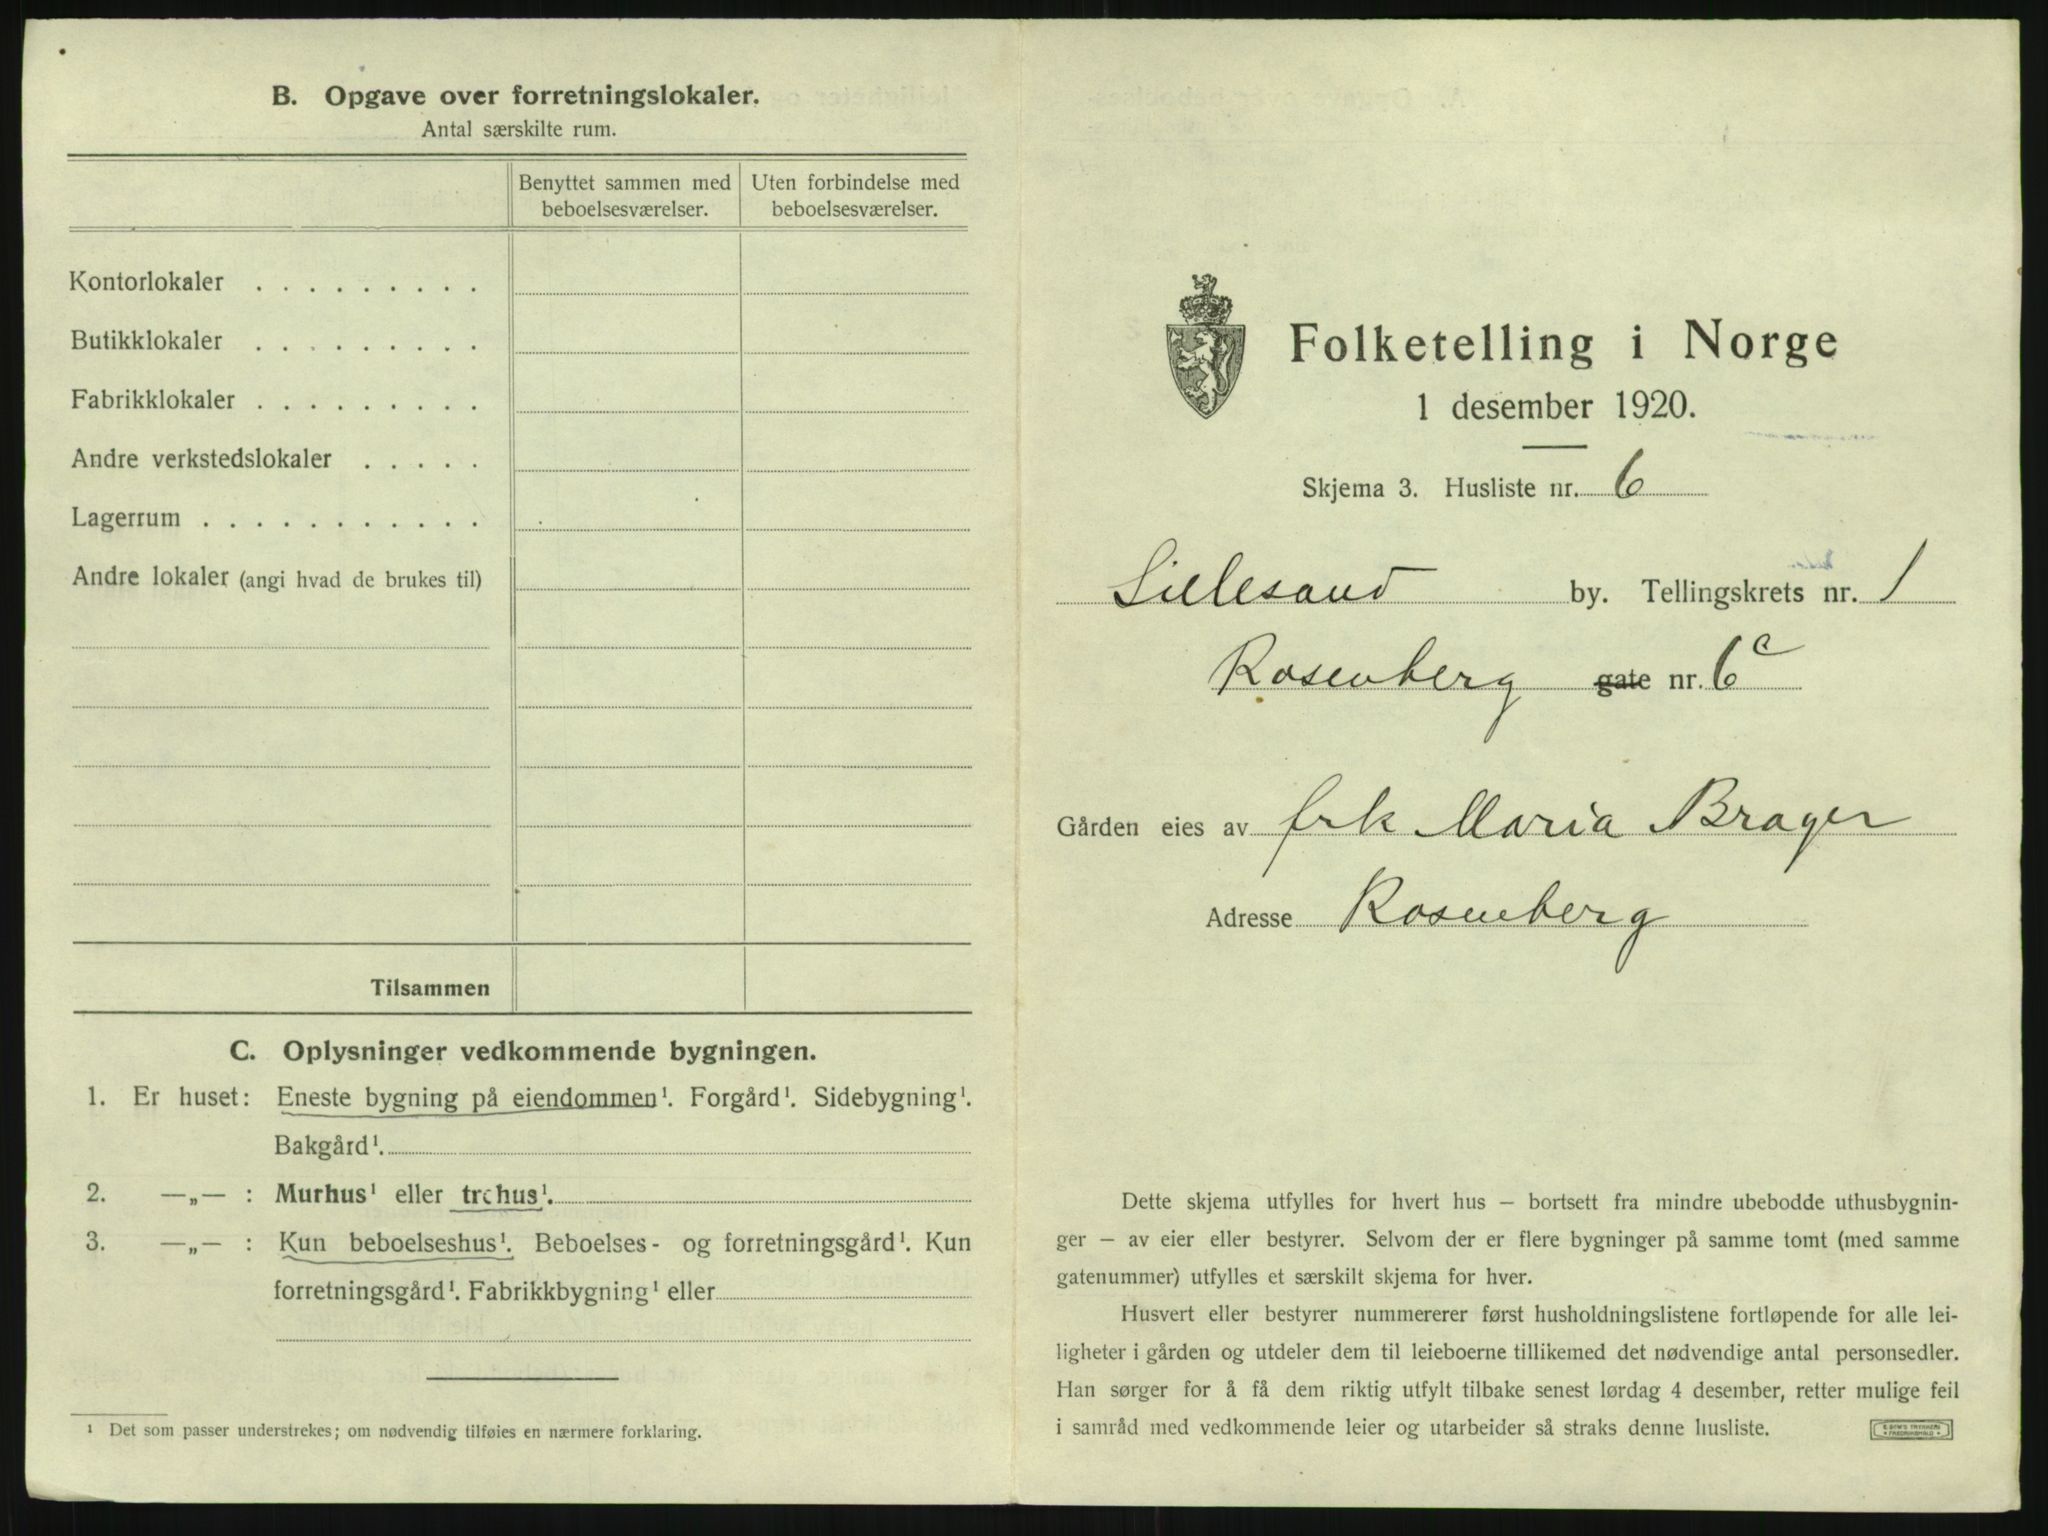 B. Opgave over forretningslokaler.
Antal særskilte rum.
Benyttet sammen med beboelsesværelser.
Uten forbindelse med beboelsesværelser.
Kontorlokaler . . . . . . . . .
Butikklokaler . . . . . . . . .
Fabrikklokaler . . . . . . . . .
Andre verkstedslokaler . . . . .
Lagerrum . . . . . . . . . . .
Andre lokaler (angi hvad de brukes til)
Tilsammen
C. Oplysninger vedkommende bygningen.
1. Er huset: Eneste bygning på eiendommen¹. Forgård¹. Sidebygning¹.
Bakgård¹.
2. —„— : Murhus¹ eller trehus¹.
3. —„— : Kun beboelseshus¹. Beboelses- og forretningsgård¹. Kun
forretningsgård¹. Fabrikkbygning¹ eller
¹ Det som passer understrekes; om nødvendig tilføies en nærmere forklaring.
Folketelling i Norge
1 desember 1920.
Skjema 3. Husliste nr. 6
Lillesand by. Tellingskrets nr. 1
Rosenberg gate nr. 6c
Gården eies av frk Maria Brager
Adresse Rosenberg
Dette skjema utfylles for hvert hus — bortsett fra mindre ubebodde uthusbygnin-
ger — av eier eller bestyrer. Selvom der er flere bygninger på samme tomt (med samme
gatenummer) utfylles et særskilt skjema for hver.
Husvert eller bestyrer nummererer først husholdningslistene fortløpende for alle lei-
ligheter i gården og utdeler dem til leieboerne tillikemed det nødvendige antal personsedler.
Han sørger for å få dem riktig utfylt tilbake senest lørdag 4 desember, retter mulige feil
i samråd med vedkommende leier og utarbeider så straks denne husliste.